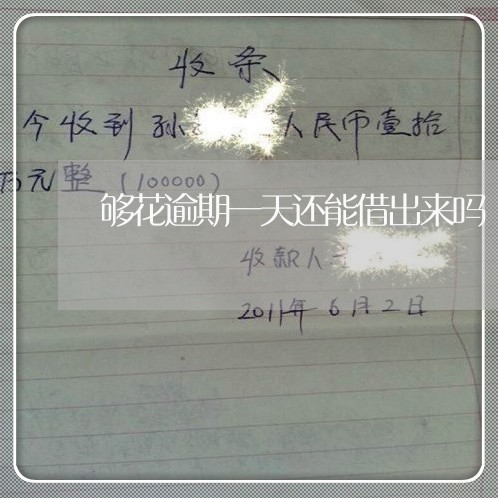 收条
今收到孙 人民币壹拾
万元整（100000）
够花逾期一天还能借出来吗
收款人
2011年6月2日